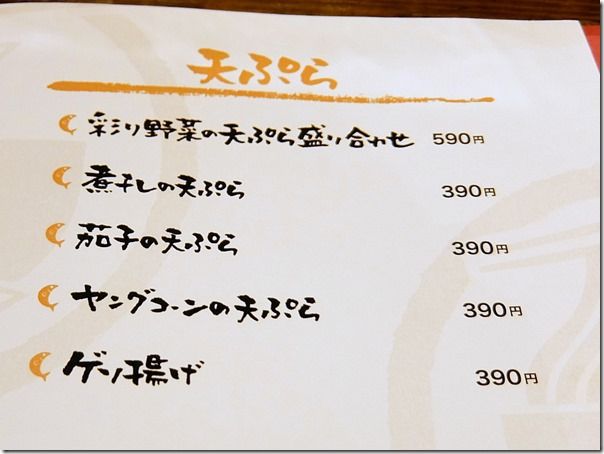 天ぷら
彩り野菜の天ぷら盛り合わせ 590円
煮干しの天ぷら 390円
茄子の天ぷら 390円
ヤングコーンの天ぷら 390円
ゲソ揚げ 390円